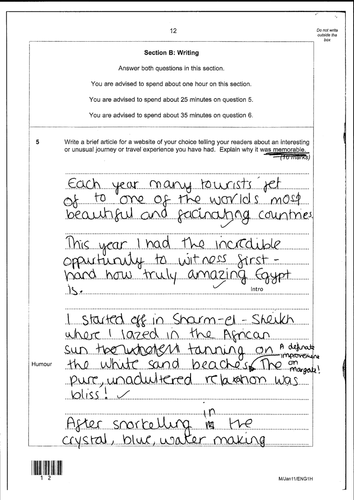 12
Do not write
outside the
box
Section B: Writing
Answer both questions in this section.
You are advised to spend about one hour on this section.
You are advised to spend about 25 minutes on question 5.
You are advised to spend about 35 minutes on question 6.
5 Write a brief article for a website of your choice telling your readers about an interesting
or unusual journey or travel experience you have had. Explain why it was memorable.
(16 marks)
Each year many tourists jet
of to one of the worlds most
beautiful and facinating countries
This year I had the incredible
oppurtunity to witness first-
hand how truly amazing Egypt
is.
Intro
I started off in Sharm-el-Sheikh
where I lazed in the African
sun tanning on
A definate
improvement
on
margate!
Humour
the white sand beaches. The
pure, unadultered relaxtion was
bliss!
After snorkelling in the
crystal, blue, water making
1 2
M/Jan11/ENG1H